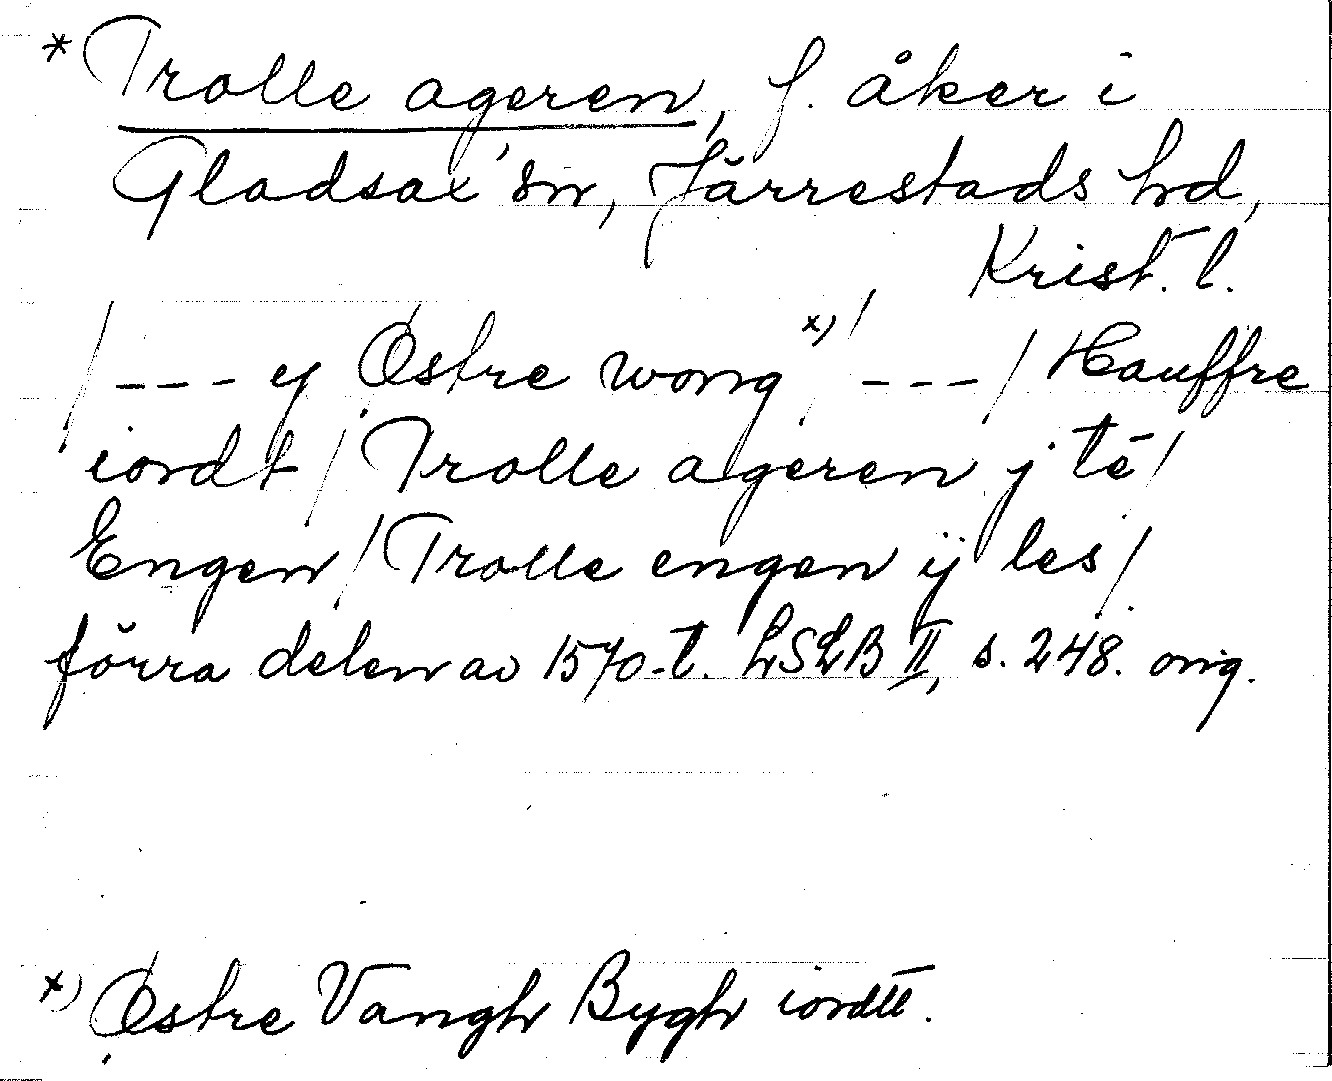 * Trolle ageren, f. åker i
Gladsax' sn, Järrestads hd,
Krist. l.
/ --- y Østre wong x) / --- / Hauffre
iordt / Trolle ageren j té /
Engen / Trolle engen ÿ les /
förra delen av 1570-t. LSLB II, s. 248. orig.
x) Østre Vangh Bygh iordtt.